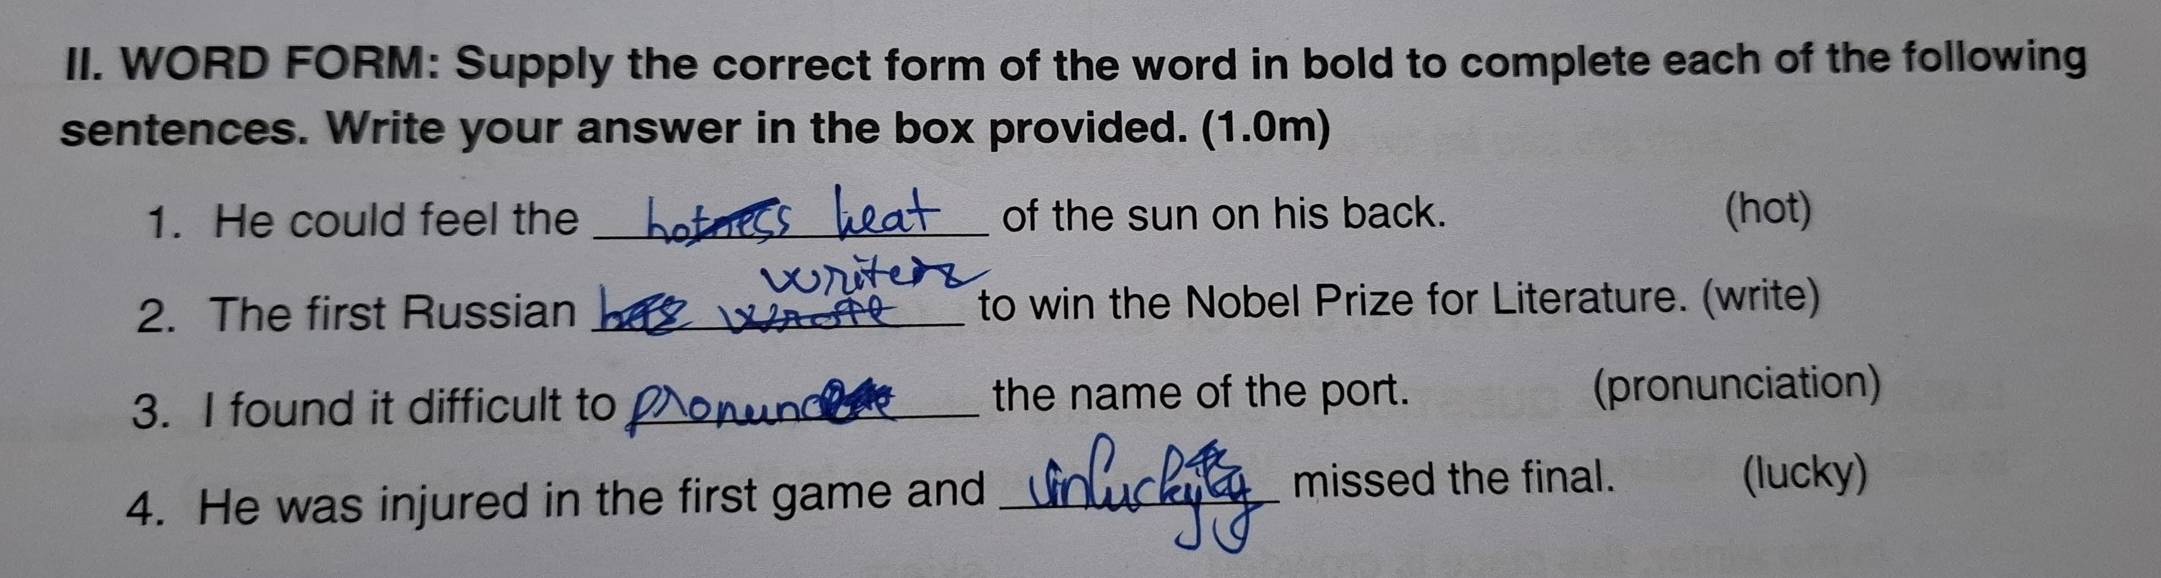 II. WORD FORM: Supply the correct form of the word in bold to complete each of the following
sentences. Write your answer in the box provided. (1.0m)
1. He could feel the hotness heat of the sun on his back. (hot)
writers
2. The first Russian has wrote to win the Nobel Prize for Literature. (write)
3. I found it difficult to the name of the port. (pronunciation)
4. He was injured in the first game and missed the final. (lucky)